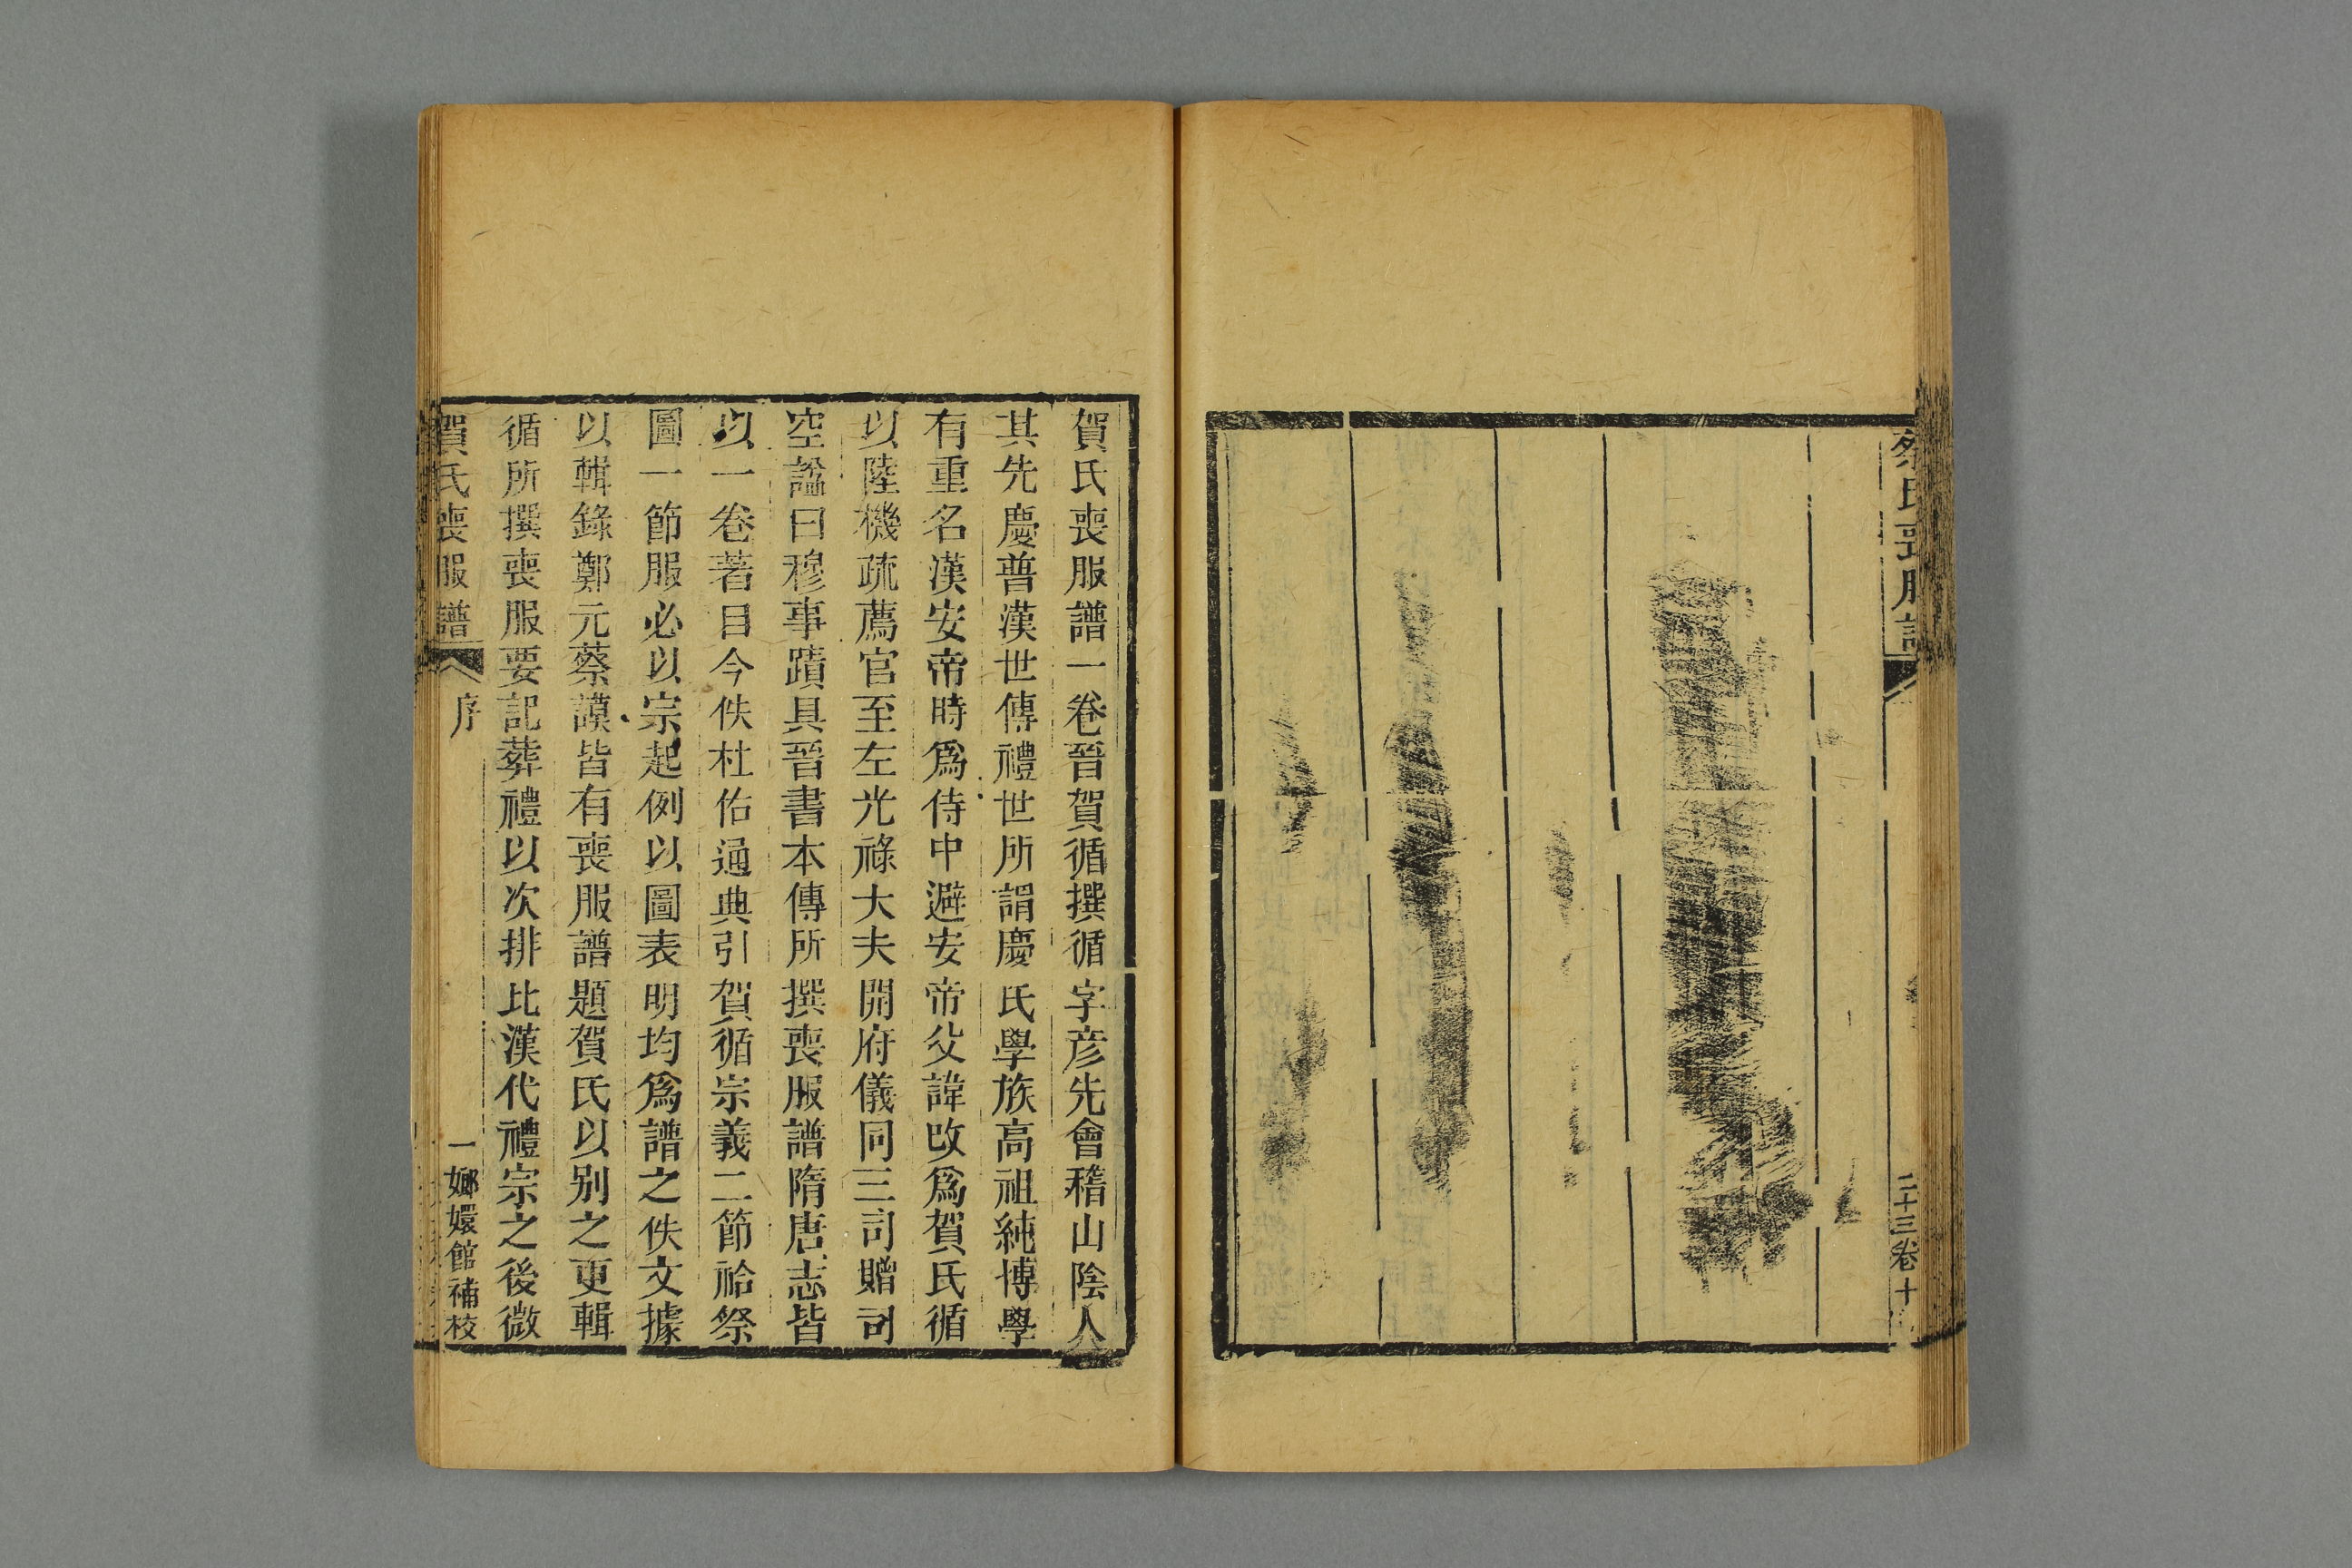 蔡氏喪服譜
二十三卷十
賀氏喪服譜一卷晉賀循撰循字彦先會稽山陰人
其先慶普漢世傳禮世所謂慶氏學族高祖純博學
有重名漢安帝時爲侍中避安帝父諱改爲賀氏循
以陸機疏薦官至左光祿大夫開府儀同三司贈司
空諡曰穆事蹟具晉書本傳所撰喪服譜隋唐志皆
以一卷著目今佚杜佑通典引賀循宗義二節祫祭
圖一節服必以宗起例以圖表明均爲譜之佚文據
以輯錄鄭元蔡謨皆有喪服譜題賀氏以别之更輯
循所撰喪服要記葬禮以次排比漢代禮宗之後微
賀氏喪服譜
序
一
嫏嬛館補校